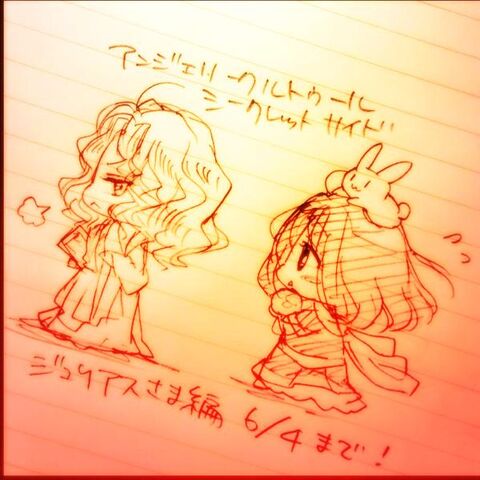 アンジェリークルトゥール
シークレットサイド
ジュリアスさま編 6/4まで!